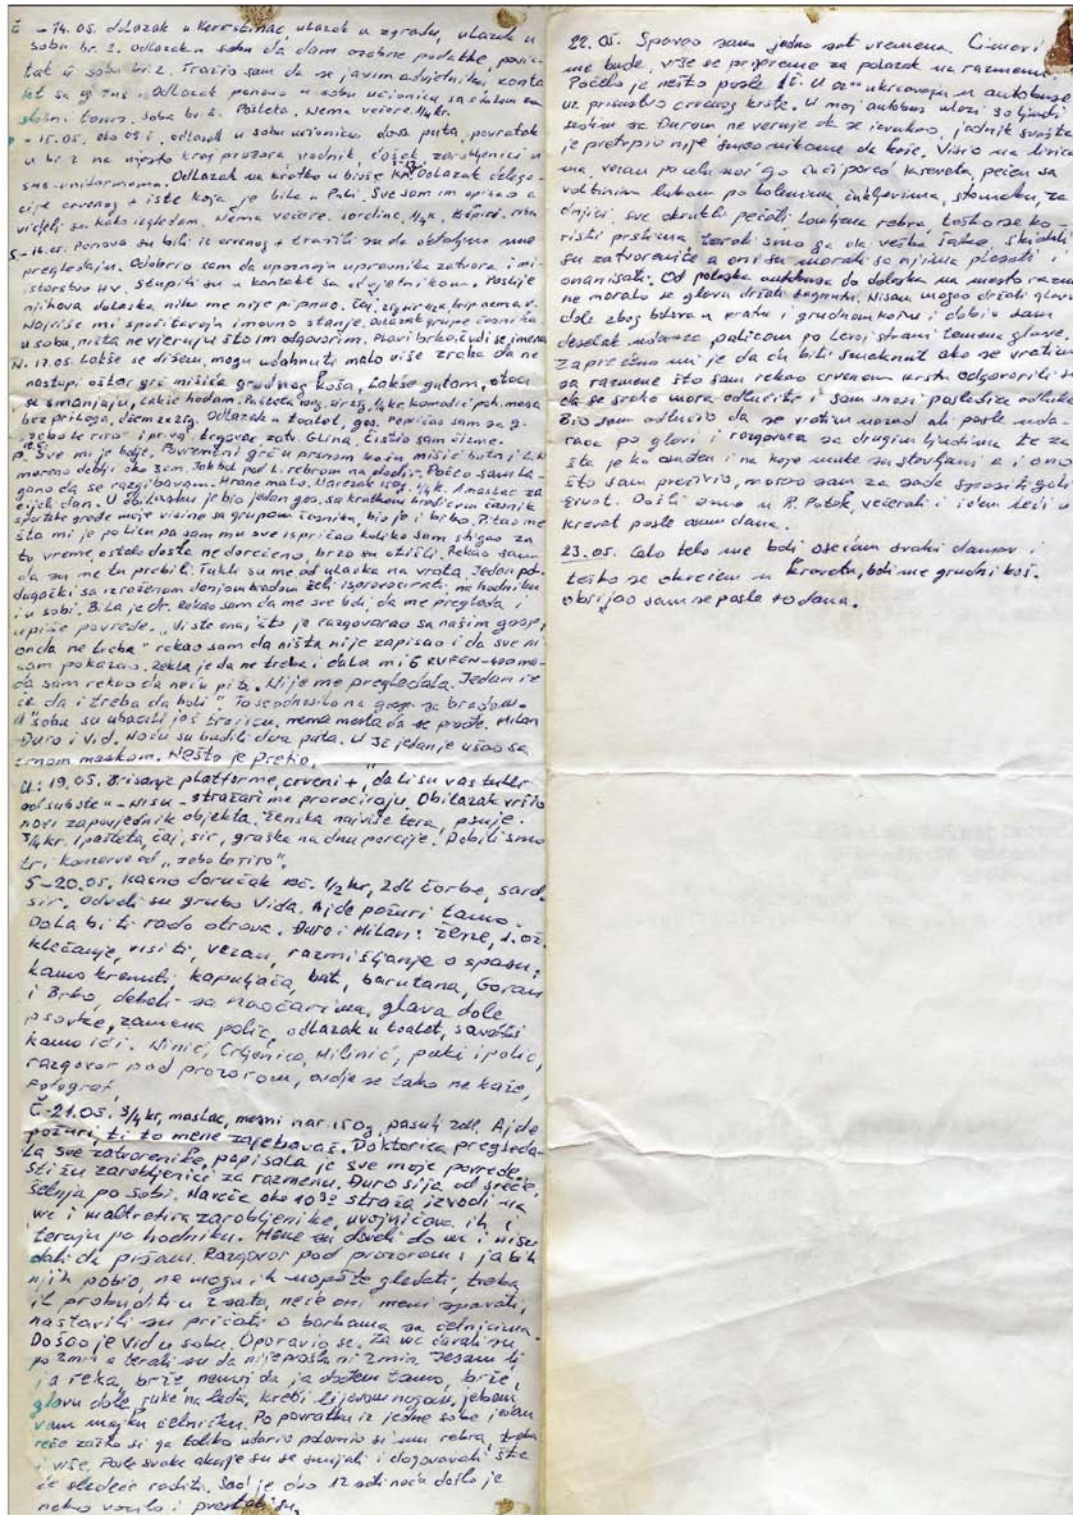 Č - 14.05. odlazak u Kerestinac, ulazak u zgradu, ulazak u
sobu br. 2. odlazak u sobu da dam osobne podatke, povra-
tak u sobu br. 2. Tražio sam da se javim advjetniku, konta
Odlazak ponovo u sobu učionicu, sa
soba br. 2. Pašteta. Nema večere. 1/4 kr.
- 15.05. oko 09 i, odlazak u sobu učionicu dosa puta, povratak
u br. 2 na mjesto kraj prozora, vodnik, ćošek, zarobljenici u
smb-uniformama. Odlazak na kratko u bivše Dolazak delega-
cije crvenog + iste koja je bila u Puli. Sve sam im opisao a
videli su kako izgledam. Nema večere. sardina, 1/4 k, riba
S-16.05. Ponovo su bili iz crvenog + tražili su da detaljno me
pregledaju. Odobrio sam da upoznaju upravnika zatvora i mi-
istarstvo HV. Stupili su u kontakt sa advjetnikom. Poslije
njihova dolaska niko me nije pipnuo. čaj, nema v.
Najviše mi spočitavaju imovno stanje. Odlazak grupe časnika
u sobu, ništa ne vjeruju što im odgovorim. Plavi brkočudi se imena
N. 17.05. Lakše se dišem, mogu udahnuti malo više zraka da ne
nastupi oštar grč mišića grudnog koša, Lakše gutam, otoci
se smanjuju, lakše hodam. Pašteta 100g, sir 25g, 1/4 kr komadić poh. mesa
bez priloga, džem 22,25g. Odlazak u toalet, gos. Popričao sam sa g.
"zebo te riro" i prvog. trgovac, zatv. Glina, čistio sam čizme.
P. Sve mi je bolje. Povremeni grč u prsnom košu mišić buta i L.K
moreno deblji oko 3cm. Jak bol pod L. rebrom na dodir. Počeo sam la-
gano da se razgibavam. Hrane malo. Narezak 150g. 1/4 k. 1 maslac za
cijeli dan. U dolasku je bio jedan gos. sa kratkom bradicom časnik
sportske građe moje visine sa grupom časnika, bio je i brko. Pitao me
šta mi je po licu pa sam mu sve ispričao koliko sam stigao za
to vreme, ostalo dosta nedorečeno, brzo su otišli. Rekao sam
da su me tu prebili. Tukli su me od ulaska na vrata. Jedan po-
dugački sa izraženom donjom bradom želi isprovocirati na hodniku
i u sobi. Bila je dr. Rekao sam da me sve boli, da me pregleda i
upiše povrede. "Vi ste onaj, što je razgovarao sa našim gosp,
onda ne treba" rekao sam da ništa nije zapisao i da sve ni
sam pokazao. Rekla je da ne treba i dala mi 6 RUFEN-400 ma-
da sam rekao da neću piti. Nije me pregledala. Jedan iz
će da i treba da boli". To se odnosilo na gosp. sa bradom.
U sobu su ubacili još trojicu. nema mesta da se prođe. Milan
Đuro i Vid. Noću su budili dva puta. U 3z jedan je ušao sa
crnom maskom. Nešto je pretio.
U: 19.05. Brisanje platforme, crveni +, "da li su vas tukli
od subote" - NISU - stražari me provociraju. Obilazak vršio
novi zapovjednik objekta. Ženska najviše tera, psuje.
3/4 kr. 1 pašteta, čaj, sir, graška na dnu porcije. Dobili smo
tri konzerve od "zebo te riro".
S-20.05. Kasno doručak 1/2 kr, 2dl čorbe, sard.
sir. Odveli su grubo Vida. Ajde požuri tamo.
Dala bi ti rado otrova. Đuro i Milan: žene, J.
klečanje, visiti, vezan, razmišljanje o spasu,
kamo krenuti, kapuljača, bat, barutana, Goran
i Brko, debeli sa naočarima, glava dole
psovke, zamena polic, odlazak u toalet, savotki
kamo ići. Ninić, Crljenica, Milinić, puki i polic,
razgovor pod prozorom, ovdje se tako ne kaže,
Fotograf,
Č-21.05. 3/4 kr, maslac, mesni nar. 150g, pasulj 2dl. Ajde
požuri, ti to mene zajebavaš. Doktorica pregleda-
la sve zatvorenike, popisala je sve moje povrede,
stižu zarobljenici za razmenu. Đuro sija od sreće,
šetnja po sobi. Naveče oko 10 32 straža izvodi na
wc i maltretira zarobljenike, uvojničava ih i
teraju po hodniku. Mene su doveli do wc i nisu
dali da pišam. Razgovor pod prozorom i ja bih
njih pobio, ne mogu ih uopšte gledati, treba
ih probuditi u 2 sata, neće oni meni spavati,
nastavili su pričati o borbama sa četnicima.
Došao je Vid u sobu. Oporavio se. Za wc davali su
po 2 min a terali su da nije prošlo ni 2 min. Jesam li
ja reka, brže, nemoj da ja dođem tamo, brže,
glavu dole, ruke na leđa, kreći lijevom nogom, jebem
vam majku četničku. Po povratku iz jedne sobe jedan
reče zašto si ga toliko udario polomio si mu rebra, treba
i više. Posle svake akcije su se smijali i dogovarali šta
će sledeće raditi. Sad je oko 12 sati noću došlo je
neko vozilo i prestali su.
22.05. Spavao sam jedno sat vremena. Cimeri
me bude, vrše se pripreme za polazak na razmenu.
Počelo je nešto posle 1č. U ukrcavaju u autobuse
uz prisustvo crvenog krsta. U moj autobus ulazi 30 ljudi
sedim sa Đurom ne veruje da se izvukao, jadnik svašta
je pretrpio nije smeo nikome da kaže. Visio na lisica
ma, vezan po celu noć go čuči pored kreveta, pečen sa
voltinim lukom po kolenima, cukljevima, stomaku, za
dnjici, sve okrugli pečati, Lomljena rebra, teško se ko-
risti prstima, terali smo ga da vežba šake, skidali
su zatvorenice a oni su morali sa njima plesati i
onanisati. Od polaska autobusa do dolaska na mesto razm
ne moralo se glava držati sagnuta. Nisam mogao držati glavu
dole zbog bolova u vratu i grudnom košu i dobio sam
desetak udaraca palicom po levoj strani temena glave.
Zaprećeno mi je da ću biti smaknut ako se vratim
sa razmene što sam rekao crvenom krstu odgovorili su
da se svako mora odlučiti i sam snosi posledice odluke
Bio sam odlučio da se vratim nazad ali posle uda-
raca po glavi i razgovora sa drugim ljudima te za
šta je ko osuđen i na koje muke su stavljani a i ono
što sam preživio, morao sam za sada spasiti goli
život. Došli smo u R. Potok, večerali i idem leći u
krevet posle osam dana.
23.05. Celo telo me boli osećam svaki damar i
teško se okrećem u krevetu, boli me grudni koš.
obrijao sam se posle 10 dana.